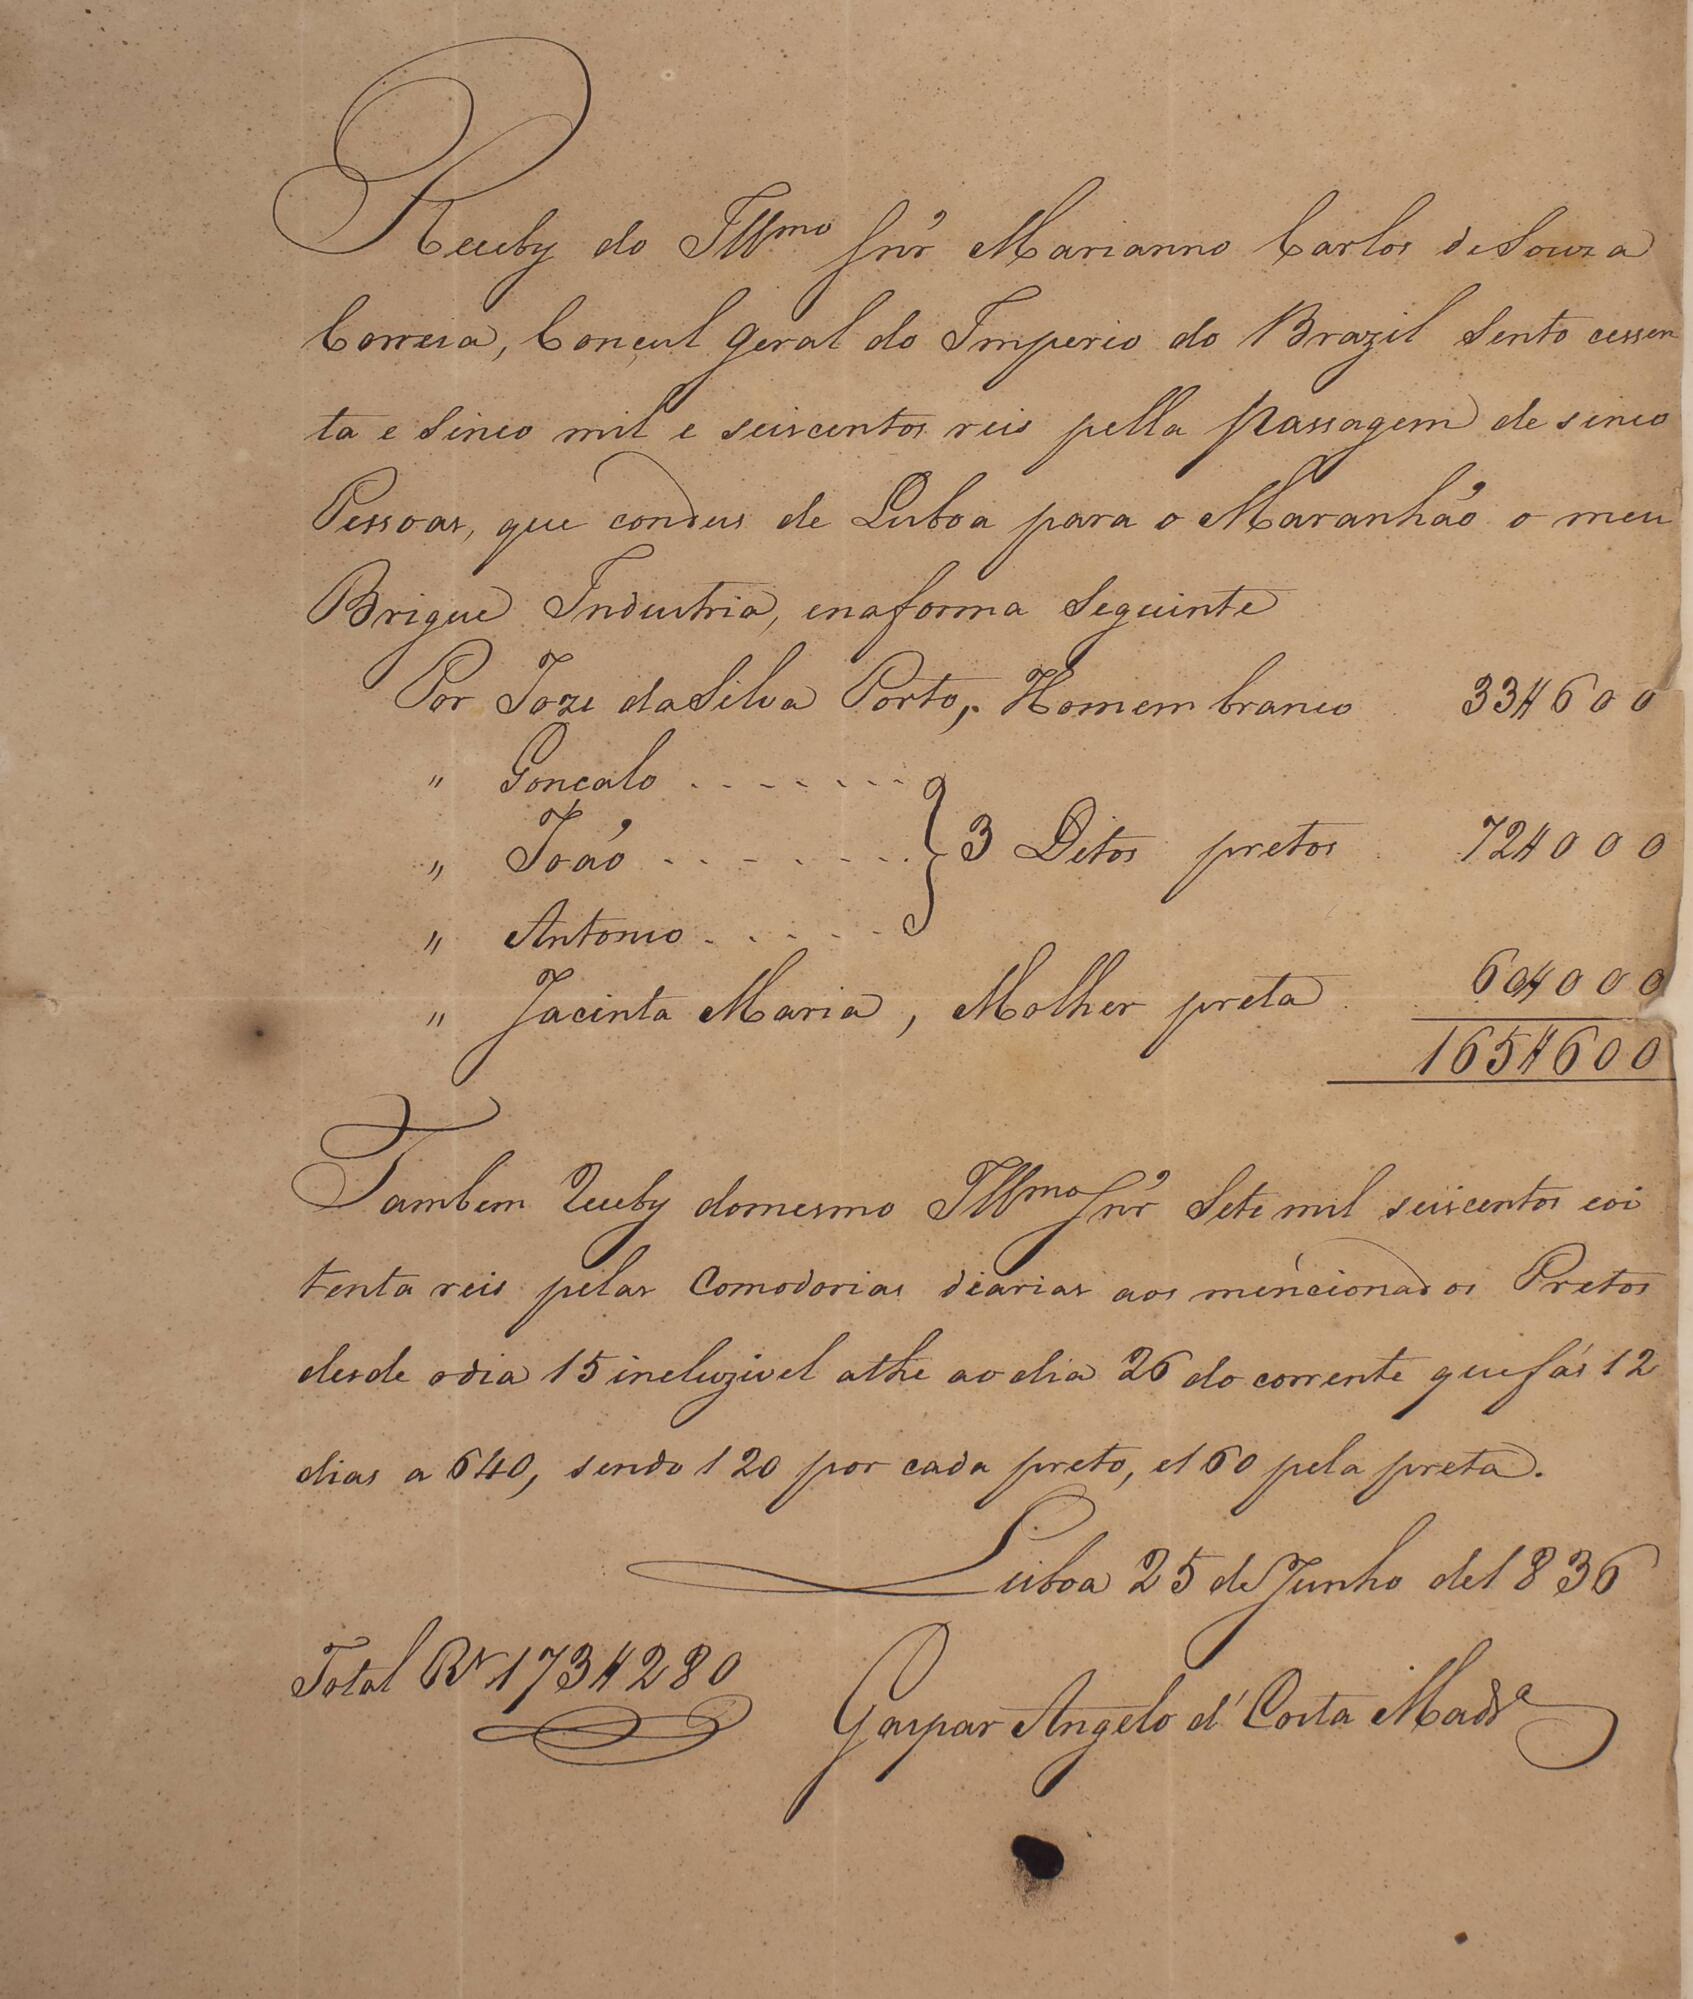 Receby do Illmo Snr Marianno Carlos de Souza
Correia, Conçul geral do Imperio do Brazil Sento cessen
ta e sinco mil e seiscentos reis pella passagem de sinco
Pessoas, que condus de Lisboa para o Maranhão o meu
Brigue Industria, enaforma Seguinte
Por Joze daSilva Porto, Homem branco 33$600
" Goncalo . . . . . . .
" João . . . . . . . } 3 Ditos pretos 72$000
" Antonio . . . . . .
" Jacinta Maria, Molher preta 60$000
165$600
Tambem Receby domesmo Illmo Snr Sete mil seiscentos eoi
tenta reis pelas Comodorias diarias aos mencionados Pretos
desde odia 15 incluzivel athe ao dia 26 do corrente que fás 12
dias a 640, sendo 120 por cada preto, e160 pela preta.
Lisboa 25 de Junho de1836
Total Rs 173$280
Gaspar Angelo d'Costa Madra